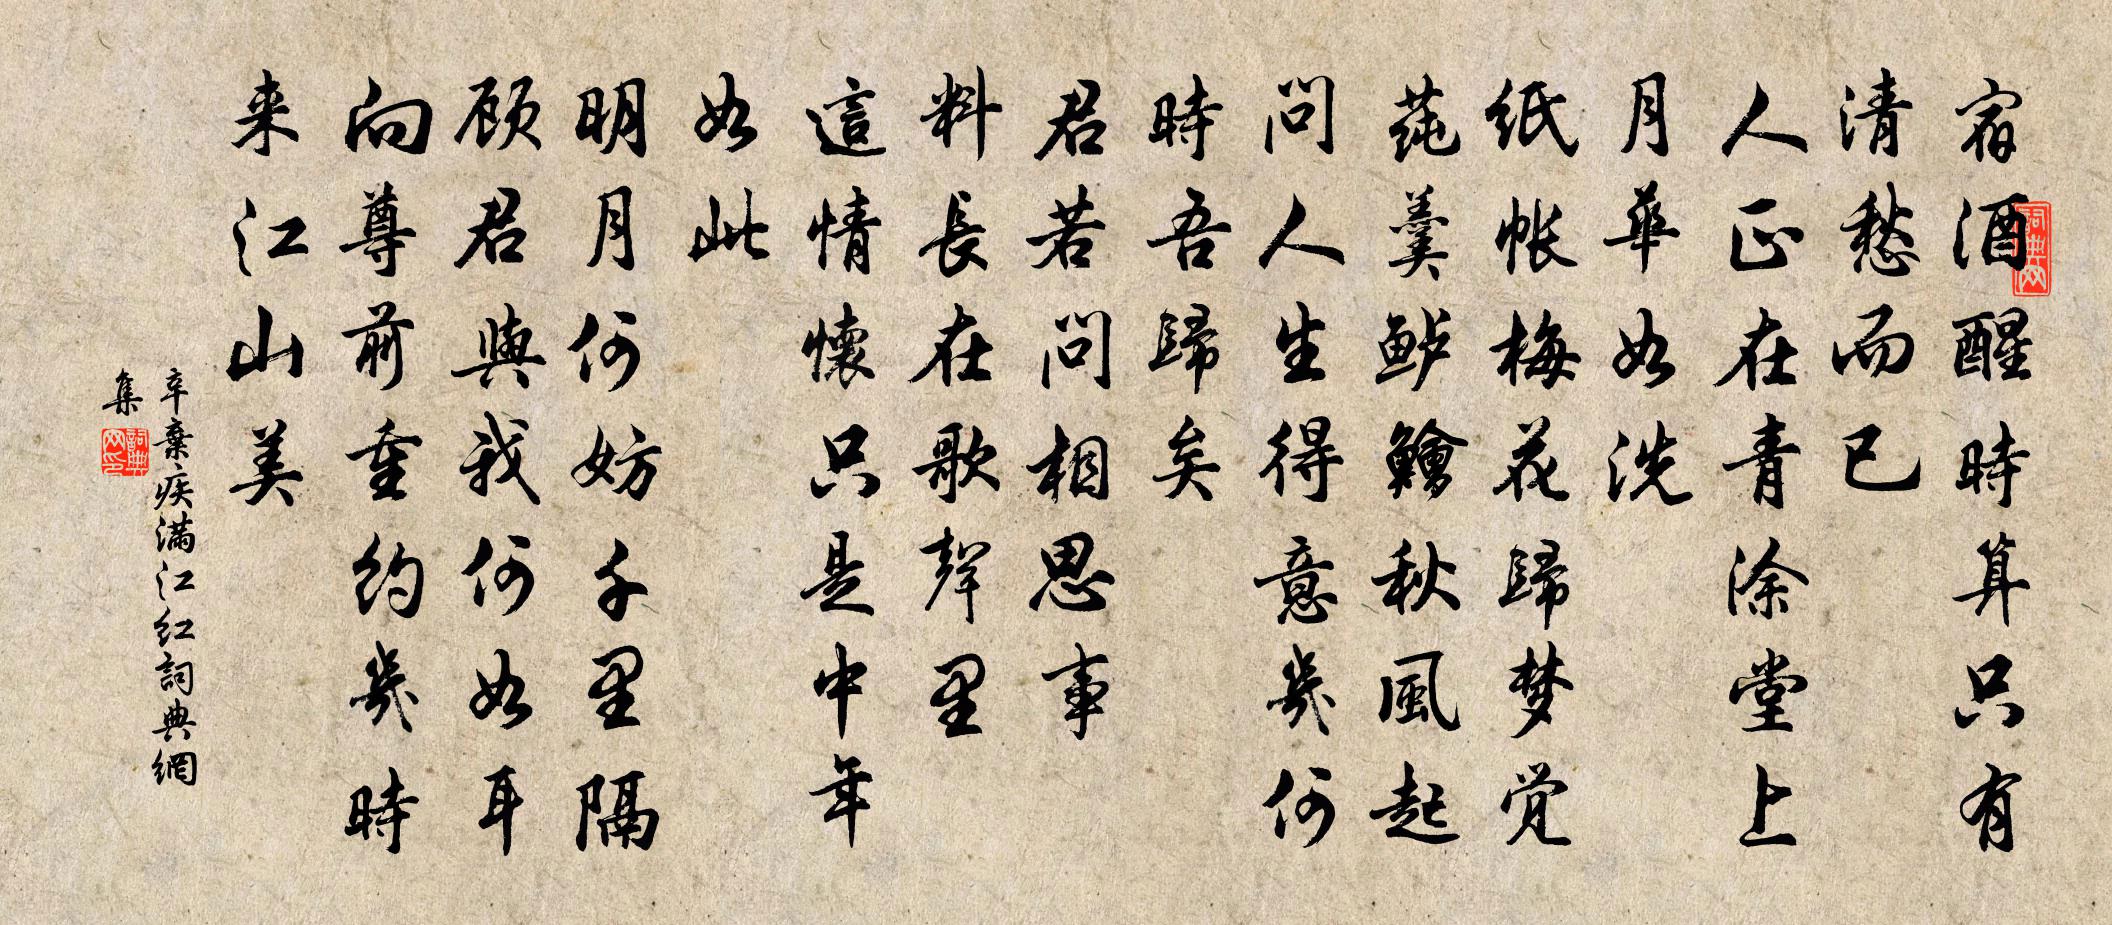 宿酒醒時算只有
清愁而已
人正在青涂堂上
月華如洗
紙帳梅花歸梦觉
莼羹鲈鱠秋風起
問人生得意幾何
時吾歸矣
君若問相思事
料長在歌聲里
這情懷只是中年
如此
明月何妨千里隔
顾君與我何如耳
向尊前重約幾時
来江山美
辛棄疾满江红詞典網
集
詞典网
詞典网印